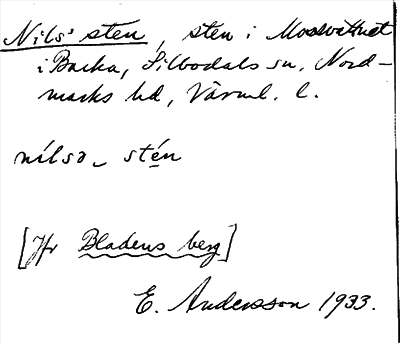 Nils' sten, sten i Mossvattnet
i Backa, Silbodals sn, Nord-
marks hd, Värml. l.
nílsa_ stén
[Jfr Bladens berg]
E. Andersson 1933.